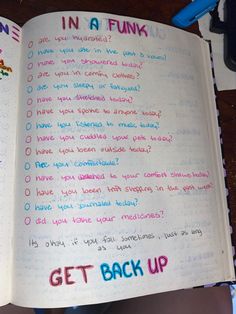 IN A FUNK
O are you hydrated?
O have you ate in the past 5 hours?
O have you showered today?
O are you in comfy clothes?
O are you sleepy or fatigued?
O have you stretched today?
O have you spoke to anyone today?
O have you listened to music today?
O have you cuddled your pets today?
O have you been outside today?
O Are you comfortable?
O have you listened to your comfort show today?
O have you been thrift shopping in the past week?
O have you journaled today?
O did you take your medicines?
Its okay if you fall sometimes, just as long
as you
GET BACK UP